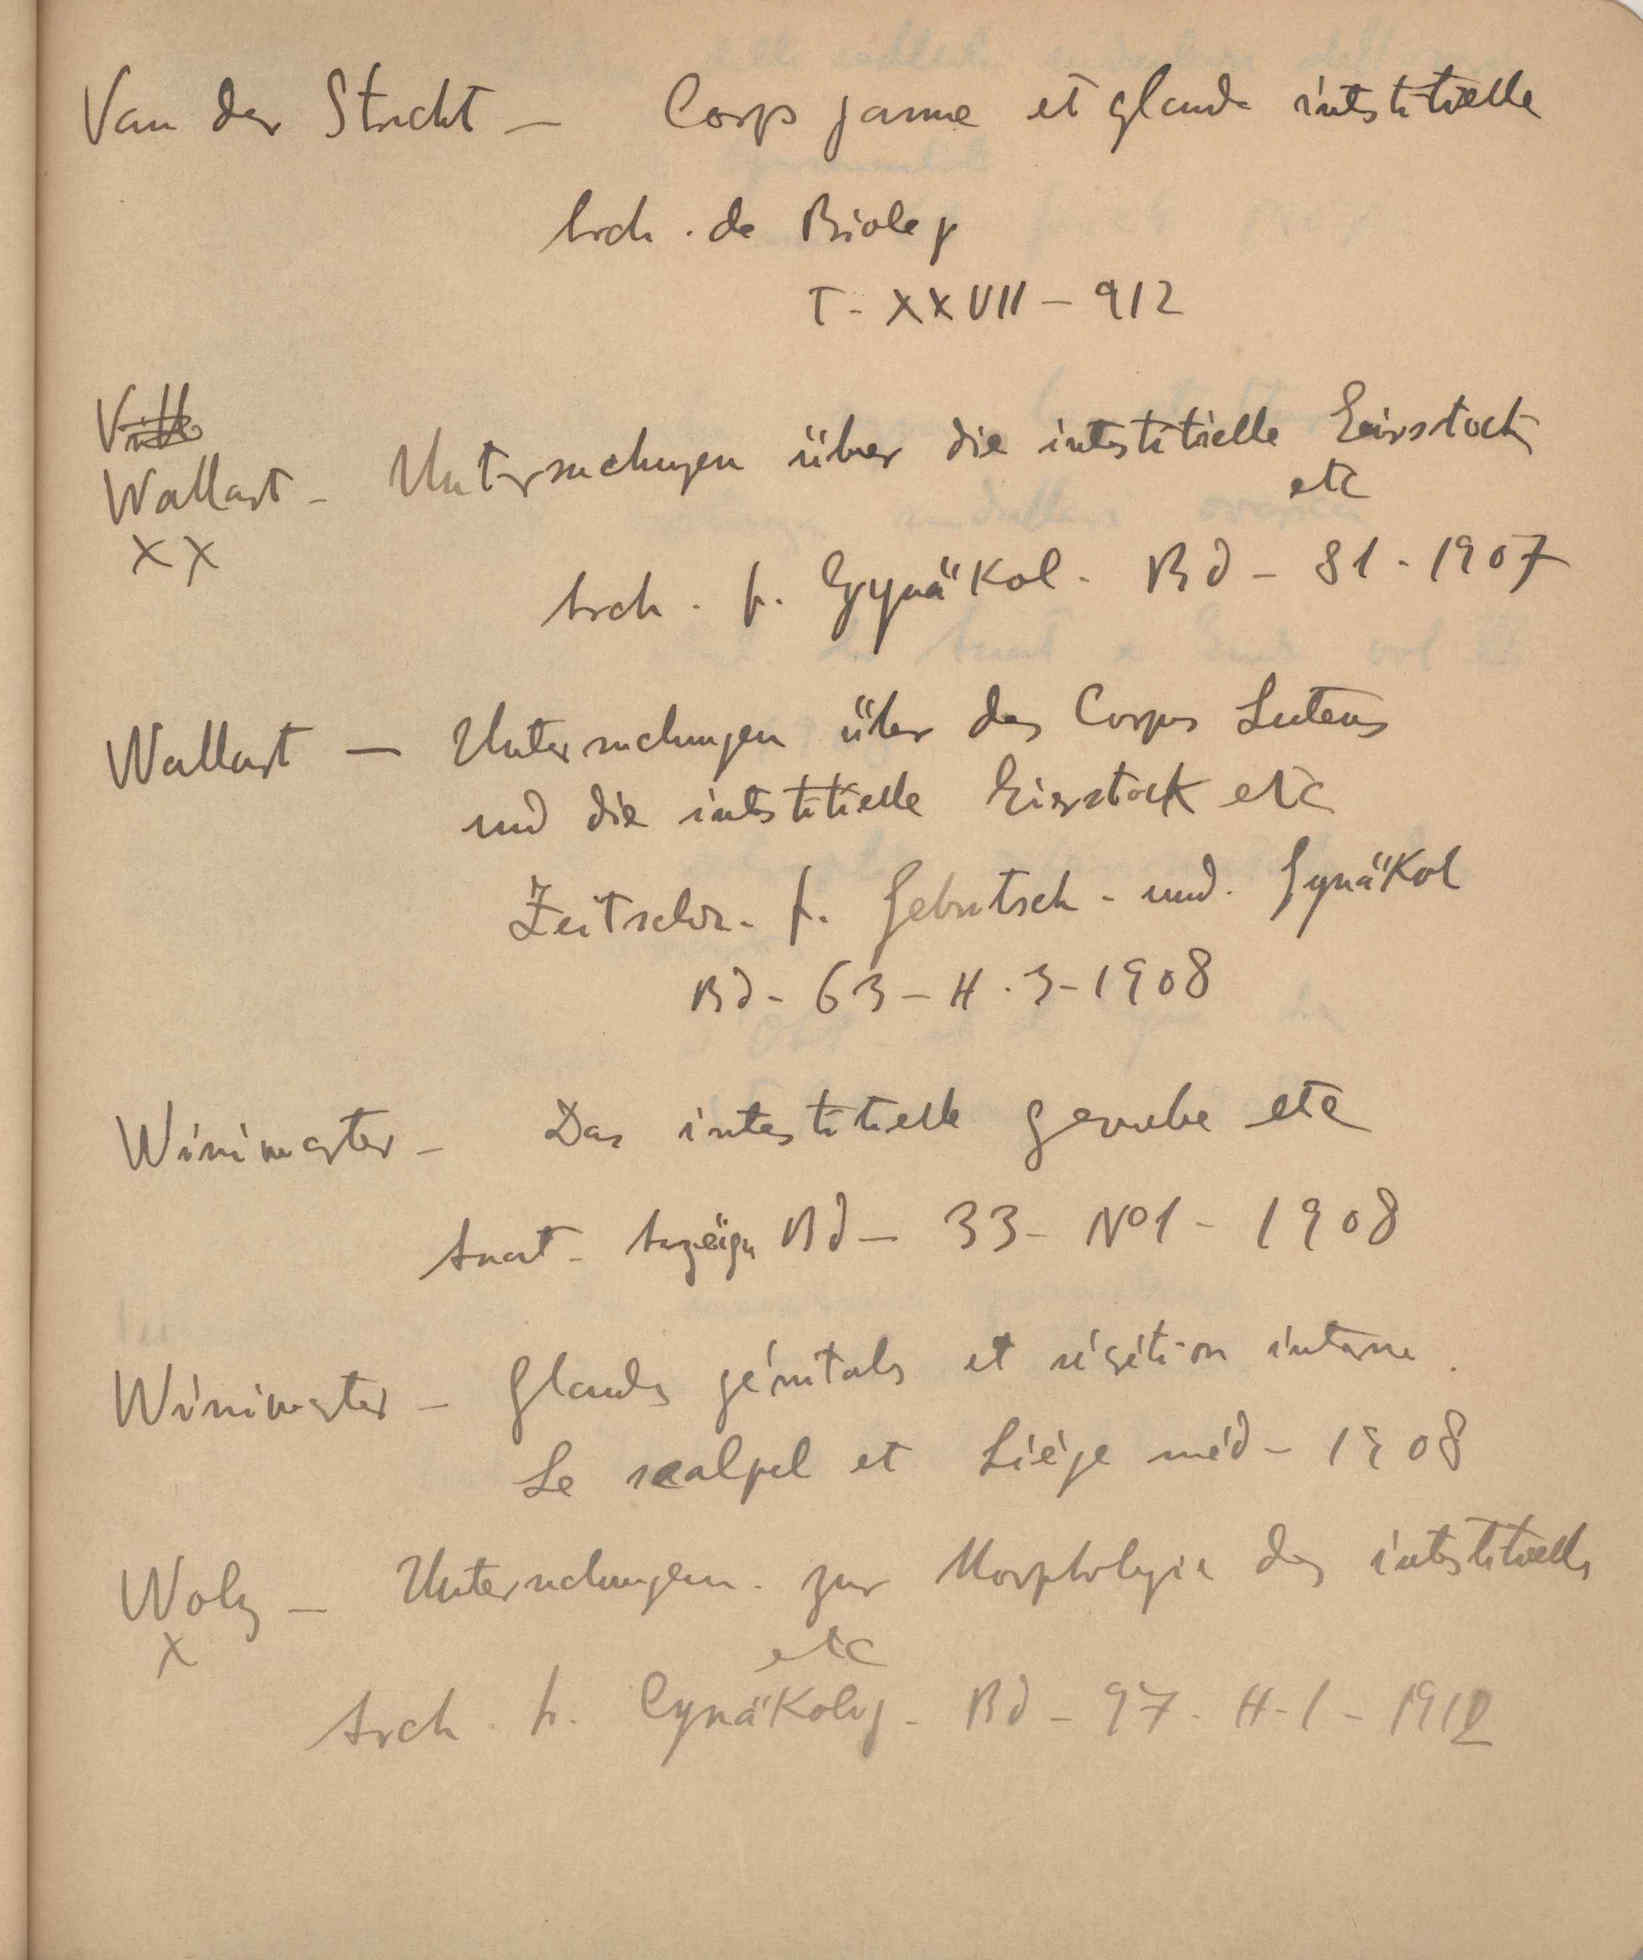 Van der Stricht - Corps jaune et glande interstitielle
Arch. de Biolog
T - XXVII - 912
Wallart - Untersuchungen über die interstitielle Eierstock
etc
XX
Arch. f. Gynäkol. Bd - 81 - 1907
Wallart - Untersuchungen über das Corpus Luteus
und die interstitielle Eierstock etc
Zeitschr. f. Geburtsch - und. Gynäkol
Bd - 63 - H. 3 - 1908
Winiwarter - Das interstitielle gewebe etc
Anat - Anzeiger Bd - 33 - No1 - 1908
Winiwarter - Glandes génitales et sécrétion interne.
Le scalpel et Liége méd - 1908
Wolz - Untersuchungen. zur Morphologie des interstitielle
X etc
Arch. f. Gynäkolog - Bd - 97 - H-1 - 1912